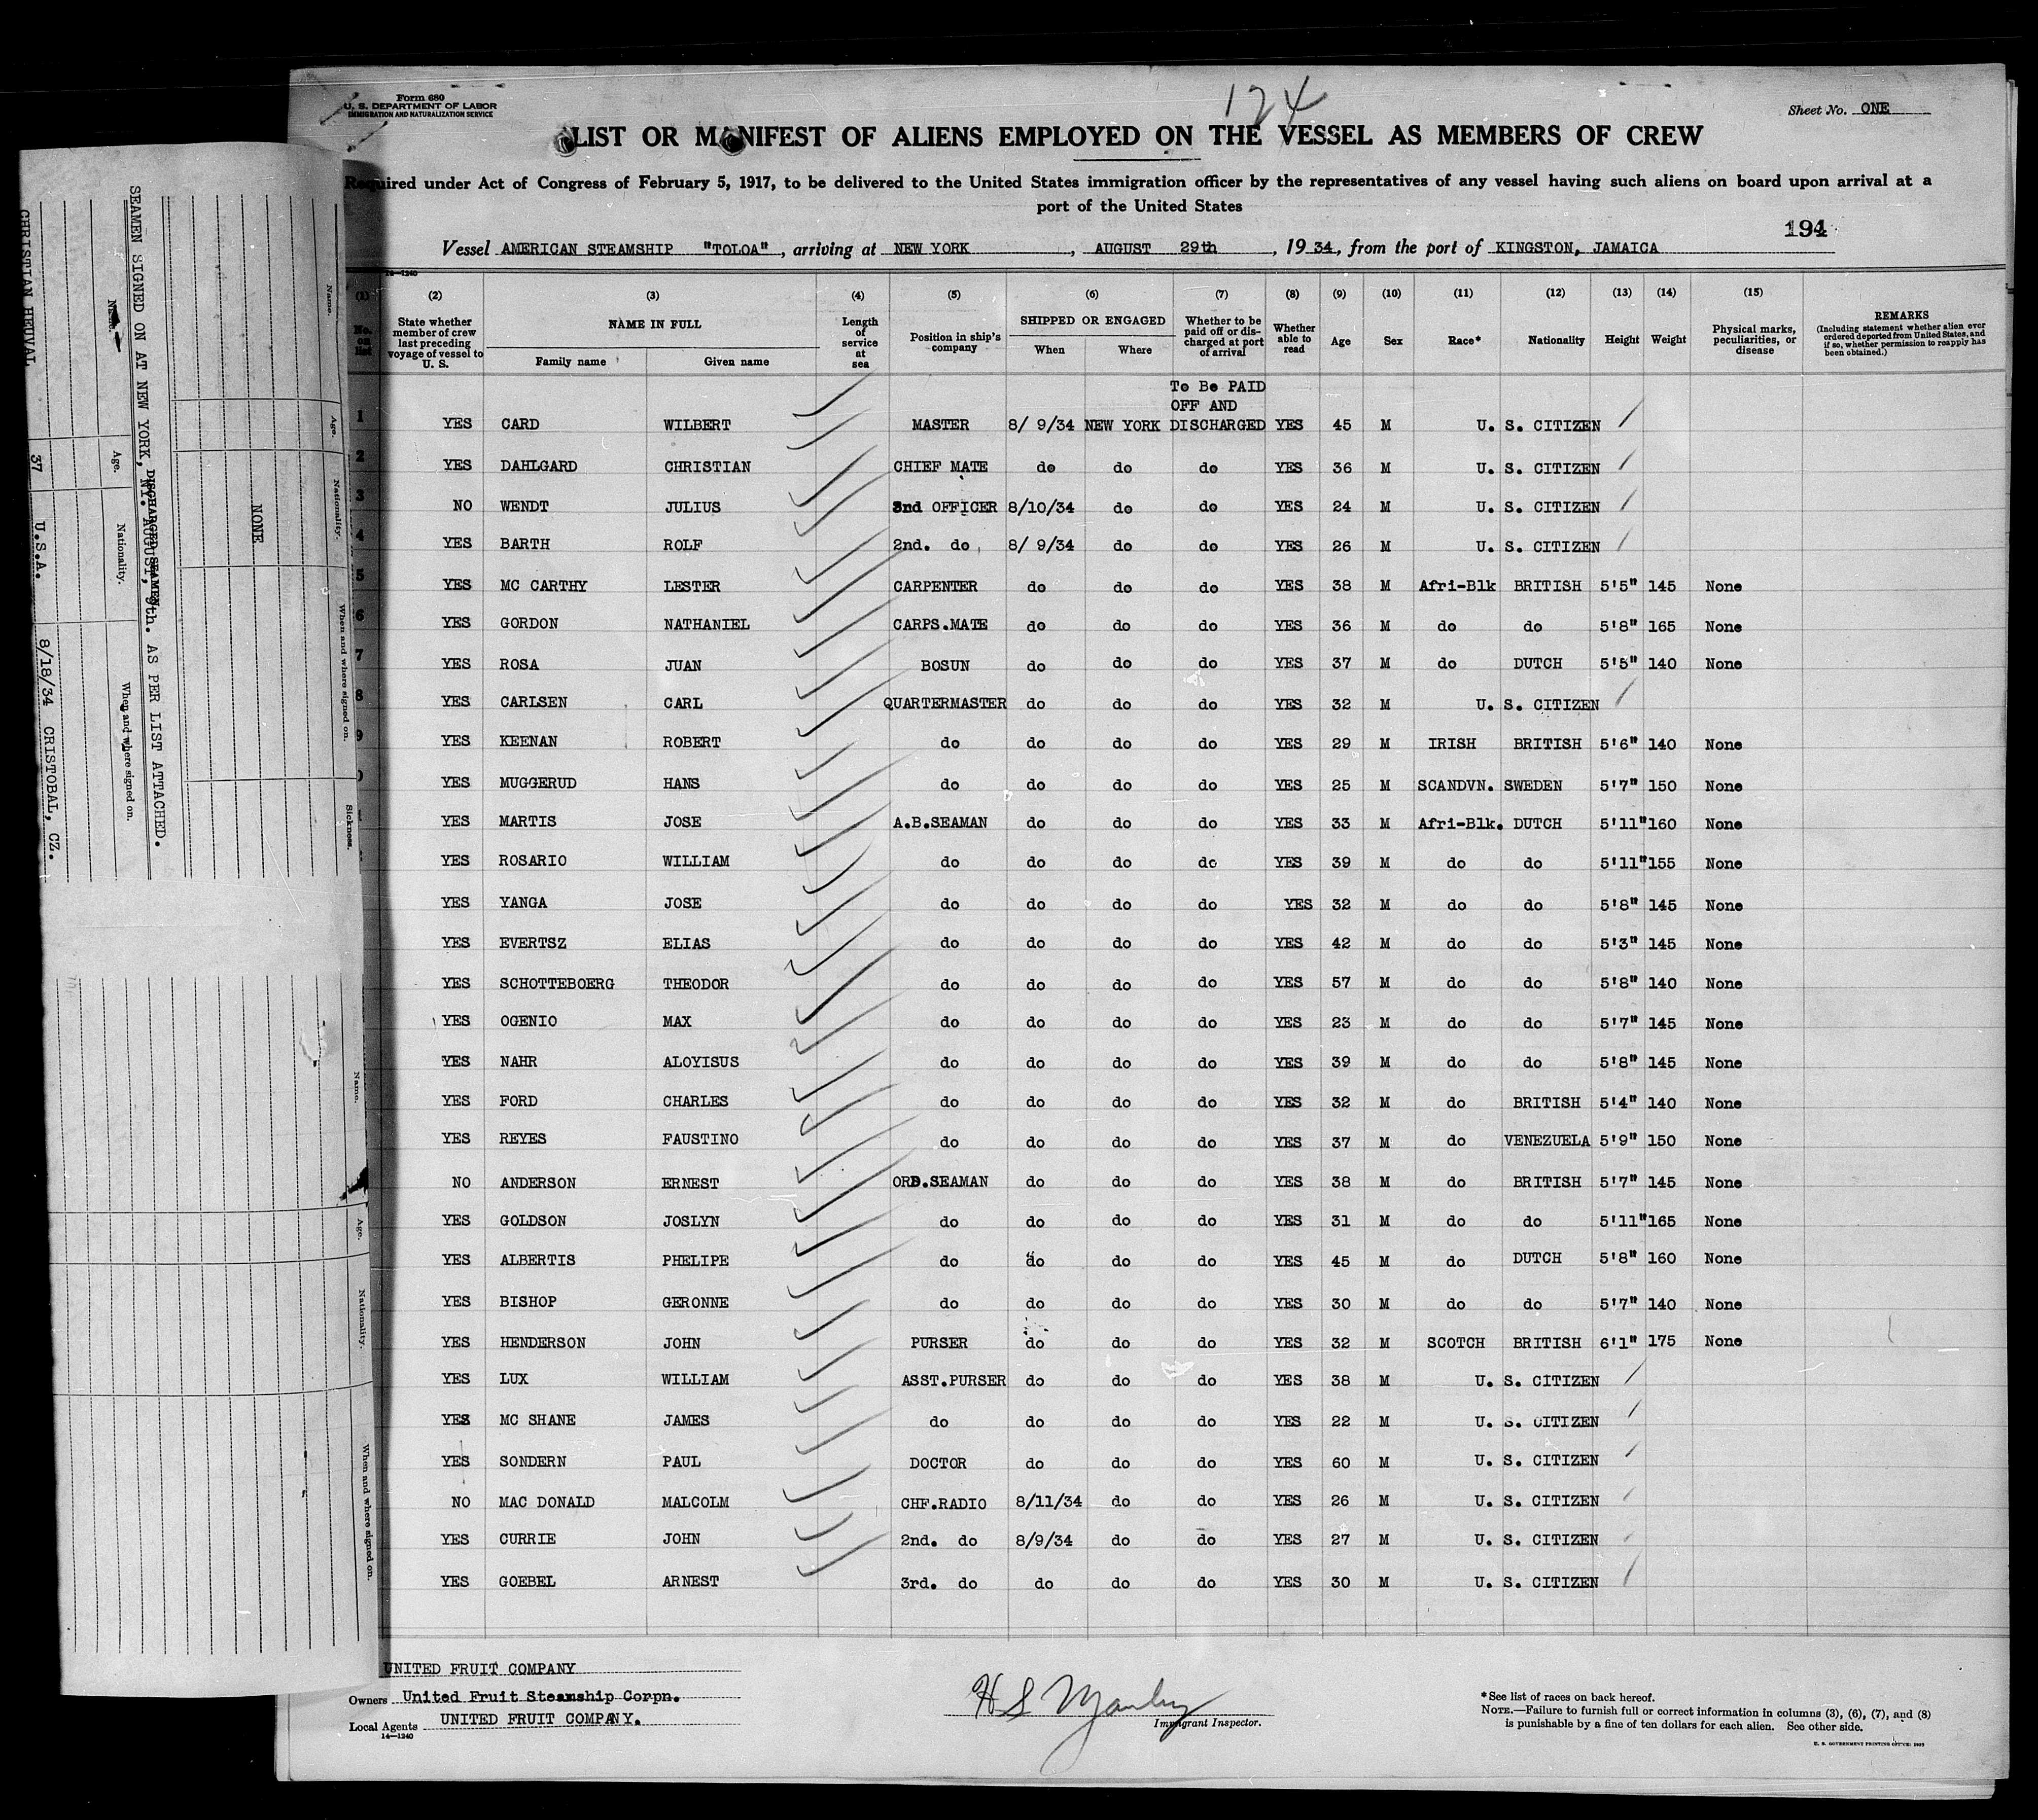 124
Form 680
U. S. DEPARTMENT OF LABOR
IMMIGRATION AND NATURALIZATION SERVICE
Sheet No. ONE
LIST OR MANIFEST OF ALIENS EMPLOYED ON THE VESSEL AS MEMBERS OF CREW
Required under Act of Congress of February 5, 1917, to be delivered to the United States immigration officer by the representatives of any vessel having such aliens on board upon arrival at a
port of the United States
194
Vessel AMERICAN STEAMSHIP "TOLOA", arriving at NEW YORK, AUGUST 29th, 1934, from the port of KINGSTON, JAMAICA
14—1240
(1) (2) (3) (4) (5) (6) (7) (8) (9) (10) (11) (12) (13) (14) (15)
No. on list
State whether member of crew last preceding voyage of vessel to U. S.
NAME IN FULL
Family name Given name
Length of service at sea
Position in ship's company
SHIPPED OR ENGAGED
When Where
Whether to be paid off or discharged at port of arrival
Whether able to read
Age
Sex
Race*
Nationality
Height
Weight
Physical marks, peculiarities, or disease
REMARKS
(Including statement whether alien ever ordered deported from United States, and if so, whether permission to reapply has been obtained.)
To Be PAID
OFF AND
1 YES CARD WILBERT MASTER 8/ 9/34 NEW YORK DISCHARGED YES 45 M U. S. CITIZEN
2 YES DAHLGARD CHRISTIAN CHIEF MATE do do do YES 36 M U. S. CITIZEN
3 NO WENDT JULIUS 3nd OFFICER 8/10/34 do do YES 24 M U. S. CITIZEN
4 YES BARTH ROLF 2nd. do 8/ 9/34 do do YES 26 M U. S. CITIZEN
5 YES MC CARTHY LESTER CARPENTER do do do YES 38 M Afri-Blk BRITISH 5'5" 145 None
6 YES GORDON NATHANIEL CARPS.MATE do do do YES 36 M do do 5'8" 165 None
7 YES ROSA JUAN BOSUN do do do YES 37 M do DUTCH 5'5" 140 None
8 YES CARLSEN CARL QUARTERMASTER do do do YES 32 M U. S. CITIZEN
9 YES KEENAN ROBERT do do do do YES 29 M IRISH BRITISH 5'6" 140 None
0 YES MUGGERUD HANS do do do do YES 25 M SCANDVN. SWEDEN 5'7" 150 None
YES MARTIS JOSE A.B.SEAMAN do do do YES 33 M Afri-Blk. DUTCH 5'11" 160 None
YES ROSARIO WILLIAM do do do do YES 39 M do do 5'11" 155 None
YES YANGA JOSE do do do do YES 32 M do do 5'8" 145 None
YES EVERTSZ ELIAS do do do do YES 42 M do do 5'3" 145 None
YES SCHOTTEBOERG THEODOR do do do do YES 57 M do do 5'8" 140 None
YES OGENIO MAX do do do do YES 23 M do do 5'7" 145 None
YES NAHR ALOYISUS do do do do YES 39 M do do 5'8" 145 None
YES FORD CHARLES do do do do YES 32 M do BRITISH 5'4" 140 None
YES REYES FAUSTINO do do do do YES 37 M do VENEZUELA 5'9" 150 None
NO ANDERSON ERNEST ORD.SEAMAN do do do YES 38 M do BRITISH 5'7" 145 None
YES GOLDSON JOSLYN do do do do YES 31 M do do 5'11" 165 None
YES ALBERTIS PHELIPE do do do do YES 45 M do DUTCH 5'8" 160 None
YES BISHOP GERONNE do do do do YES 30 M do do 5'7" 140 None
YES HENDERSON JOHN PURSER do do do YES 32 M SCOTCH BRITISH 6'1" 175 None
YES LUX WILLIAM ASST.PURSER do do do YES 38 M U. S. CITIZEN
YES MC SHANE JAMES do do do do YES 22 M U. S. CITIZEN
YES SONDERN PAUL DOCTOR do do do YES 60 M U. S. CITIZEN
NO MAC DONALD MALCOLM CHF.RADIO 8/11/34 do do YES 26 M U. S. CITIZEN
YES CURRIE JOHN 2nd. do 8/9/34 do do YES 27 M U. S. CITIZEN
YES GOEBEL ARNEST 3rd. do do do do YES 30 M U. S. CITIZEN
UNITED FRUIT COMPANY
Owners United Fruit Steamship Corpn.
Local Agents UNITED FRUIT COMPANY.
14—1240
H S
Immigrant Inspector.
*See list of races on back hereof.
NOTE.—Failure to furnish full or correct information in columns (3), (6), (7), and (8)
is punishable by a fine of ten dollars for each alien. See other side.
U. S. GOVERNMENT PRINTING OFFICE: 1933
Name. Age. Nationality. When and where signed on. Sickness.
NONE
DISCHARGED SEAMEN
SEAMEN SIGNED ON AT NEW YORK, NY. AUGUST, 9th. AS PER LIST ATTACHED.
Name. Age. Nationality. When and where signed on.
CHRISTIAN HEUVAL 37 U.S.A. 8/18/34 CRISTOBAL, CZ.
Name. Age. Nationality. When and where signed on.